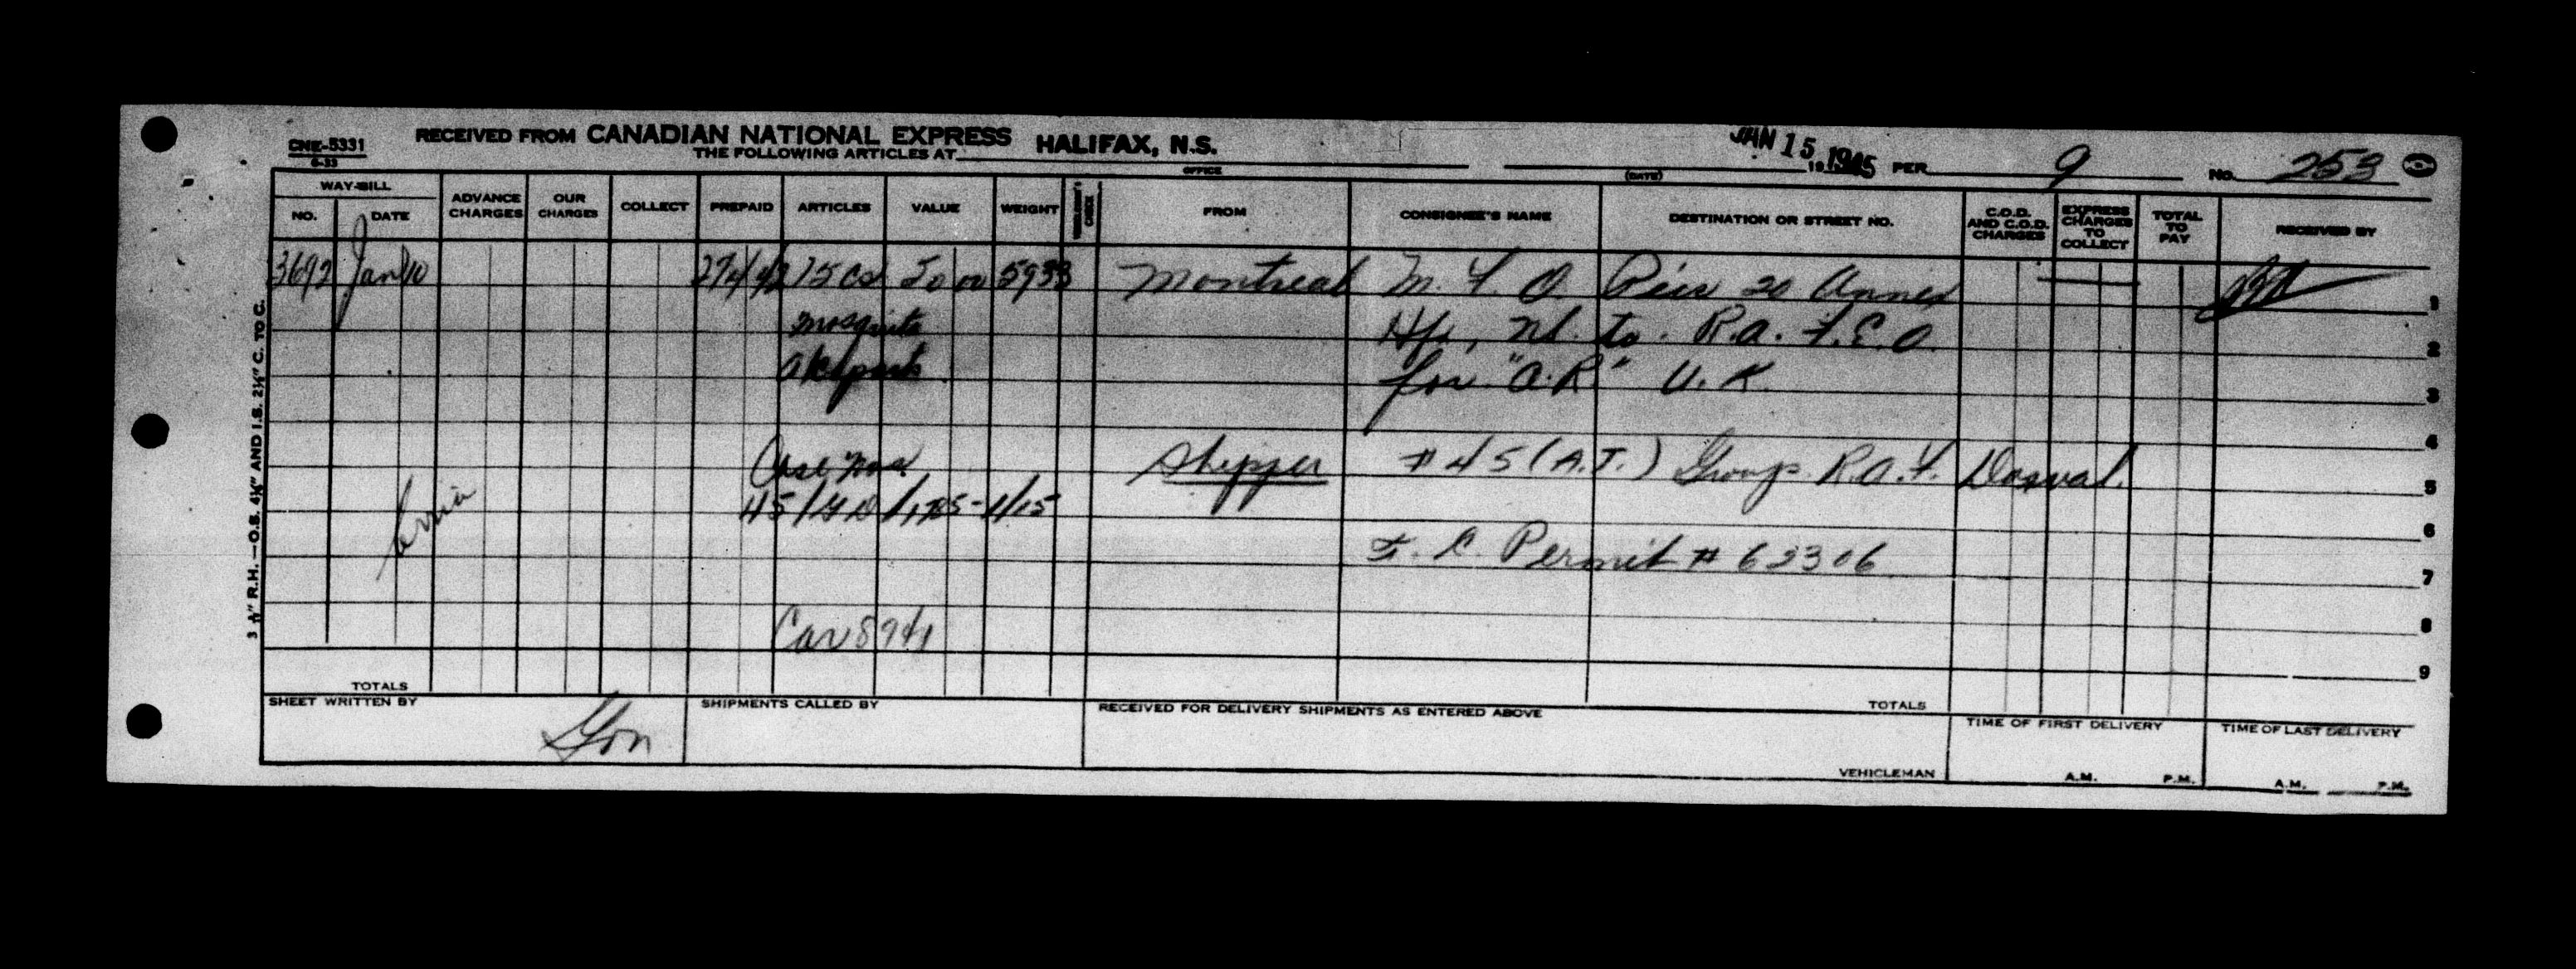 CNE-5331
6-33
RECEIVED FROM CANADIAN NATIONAL EXPRESS HALIFAX, N.S.
THE FOLLOWING ARTICLES AT
OFFICE
JAN 15 1945
19
(DATE)
PER 9
NO. 253
WAY-BILL
NO. DATE
ADVANCE CHARGES
OUR CHARGES
COLLECT
PREPAID
ARTICLES
VALUE
WEIGHT
CHECK
FROM
CONSIGNEE'S NAME
DESTINATION OR STREET NO.
C.O.D. AND C.O.D. CHARGES
EXPRESS CHARGES TO COLLECT
TOTAL TO PAY
RECEIVED BY
3692 Jan 10 15 Cs 50 00 5933 Montreal M. F. O. Pier 20 Annex 1
Mosquito Hfx, NS. to R.A.F.E.O. 2
parts for "A.R" U.K. 3
4
Case Nos. Shipper #45 (A.T.) Group R.A.F. Dorval. 5
6
F. C. Permit # 62306 7
Car 8941 8
9
TOTALS
TOTALS
SHEET WRITTEN BY
SHIPMENTS CALLED BY
RECEIVED FOR DELIVERY SHIPMENTS AS ENTERED ABOVE
VEHICLEMAN
TIME OF FIRST DELIVERY
A.M. P.M.
TIME OF LAST DELIVERY
A.M. P.M.
3 ½" R.H.—O.S. 4⅛" AND I.S. 2½" C. TO C.